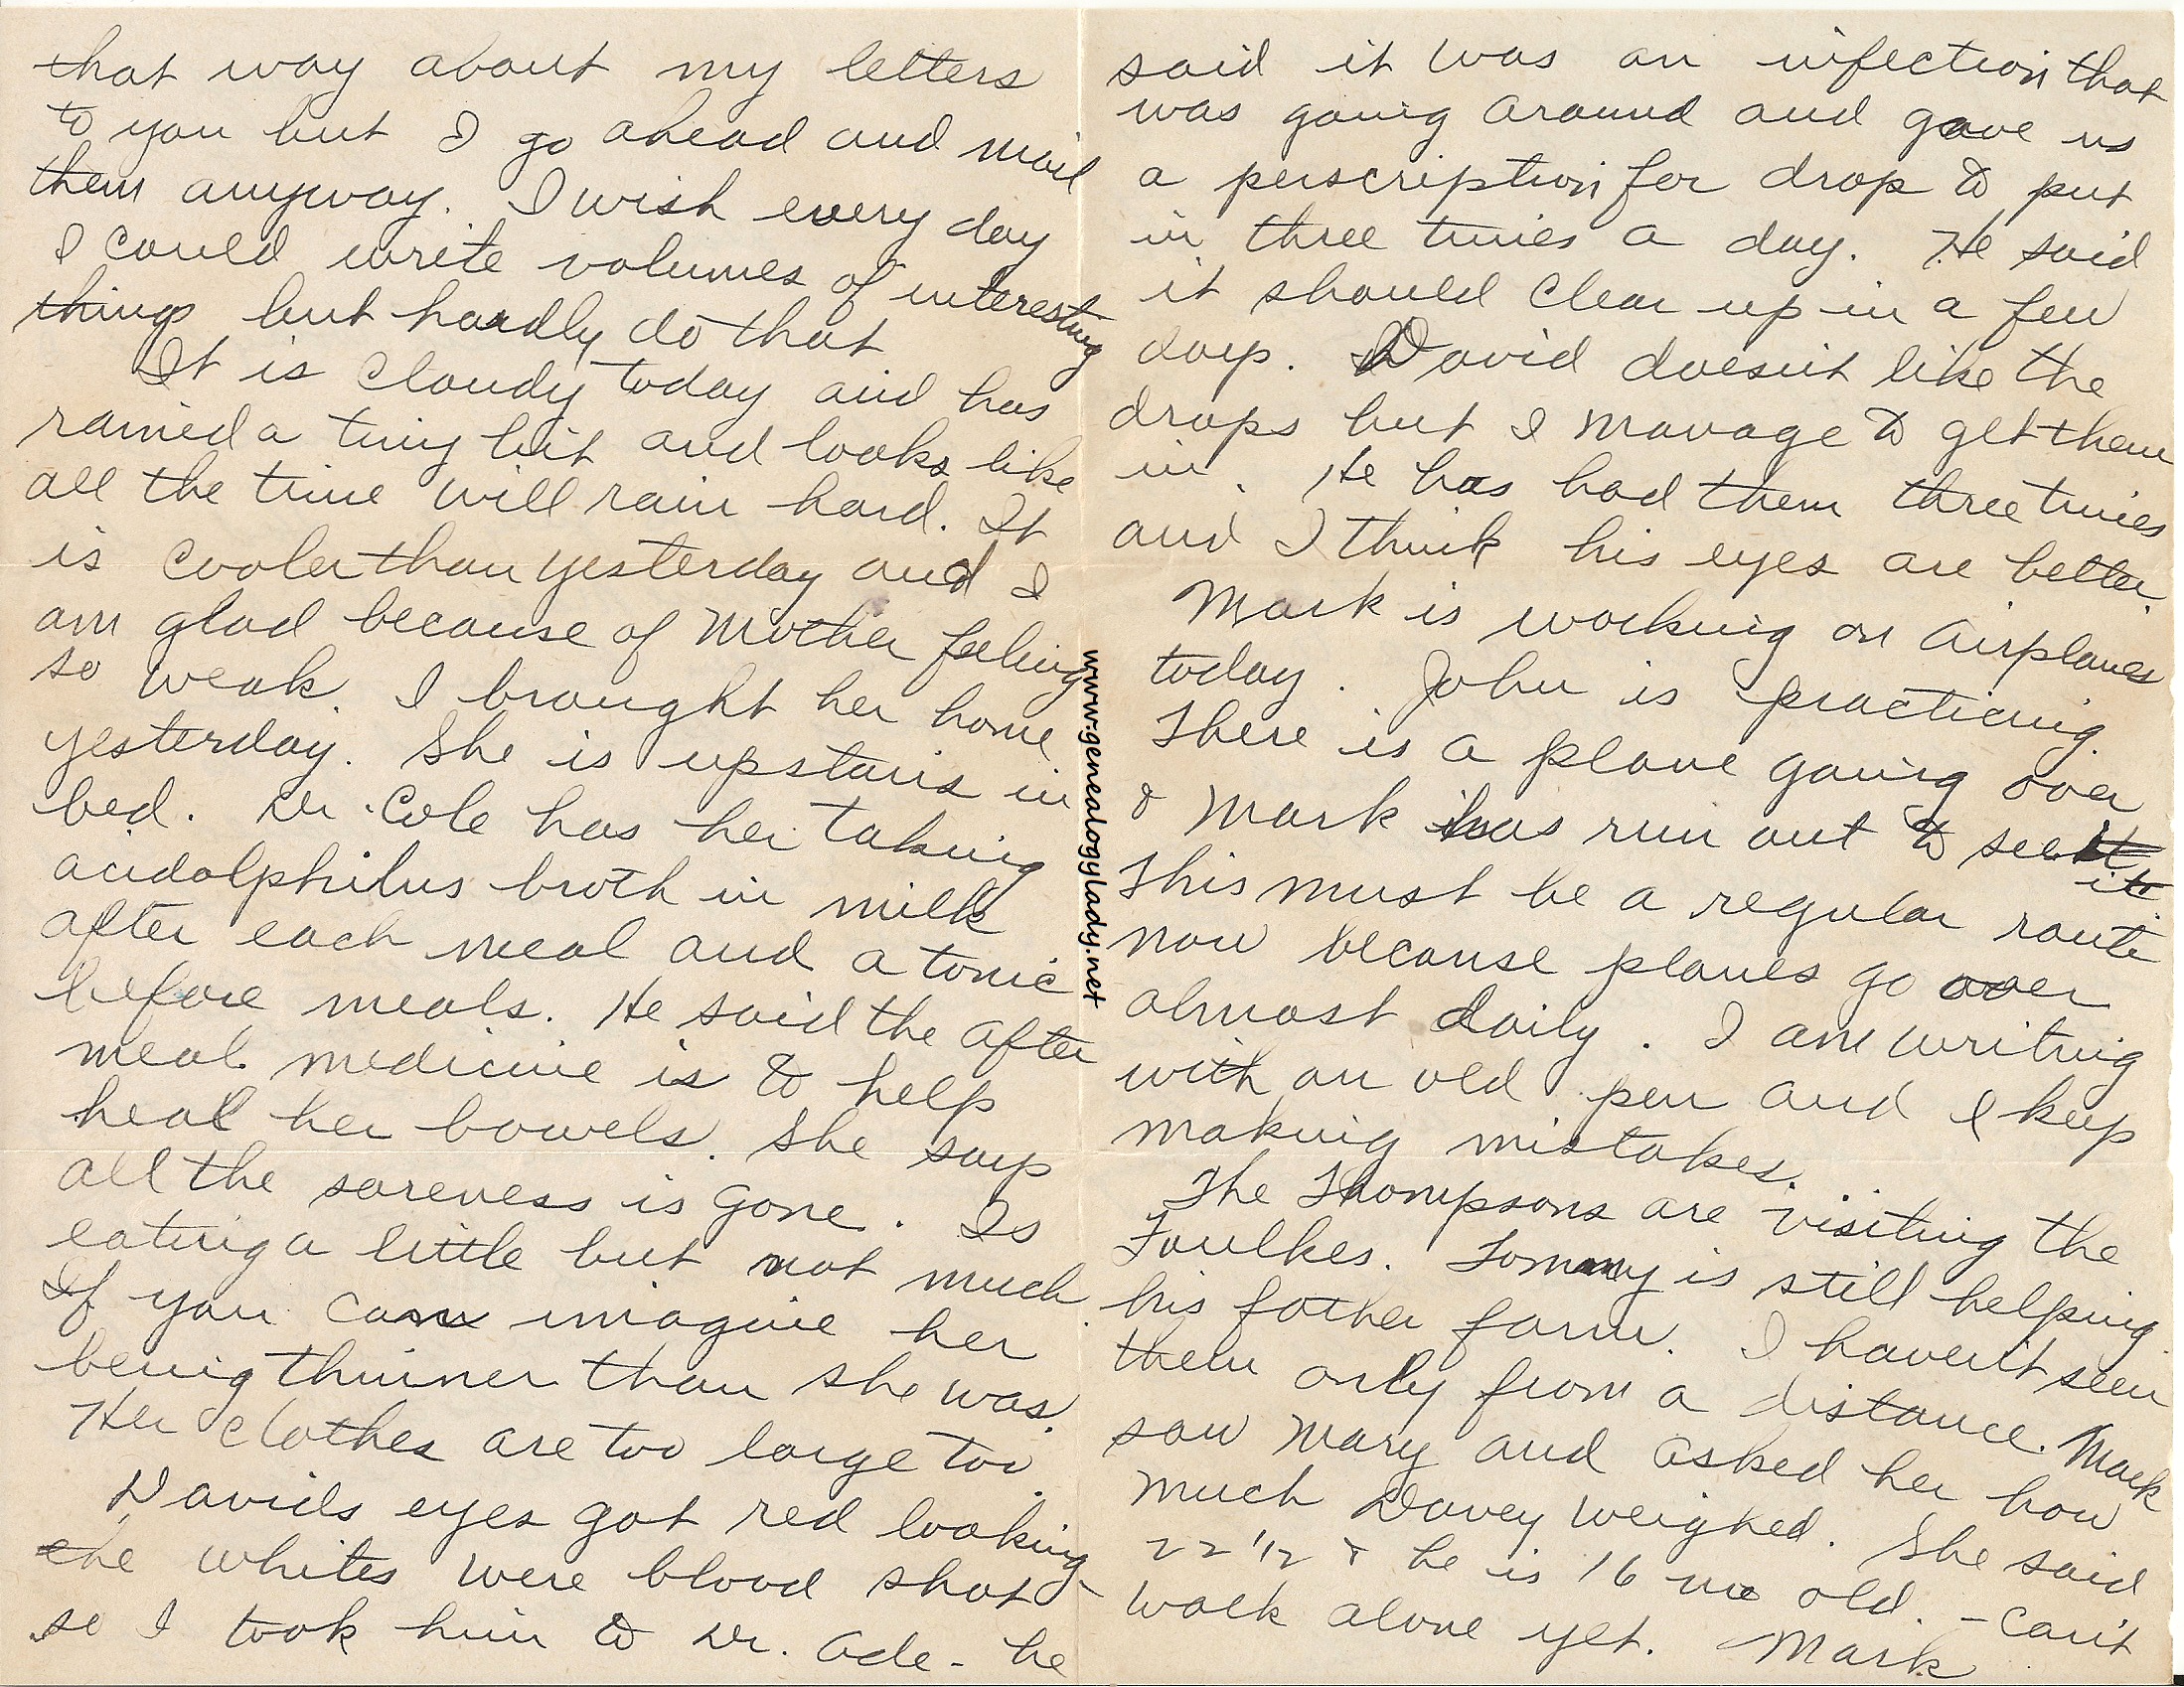 that way about my letters
to you but I go ahead and mail
them anyway. I wish every day
I could write volumes of interesting
things but hardly do that
It is cloudy today and has
rained a tiny bit and looks like
all the time will rain hard. It
is cooler than yesterday and I
am glad because of Mother feeling
so weak. I brought her home
yesterday. She is upstairs in
bed. Dr. Cole has her taking
acidolphilus broth in milk
after each meal and a tonic
before meals. He said the after
meal medicine is to help
heal her bowels. She says
all the soreness is gone. Is
eating a little but not much.
If you can imagine her
being thinner than she was.
Her clothes are too large too.
Davids eyes got red looking
the whites were blood shot
so I took him to Dr. Ade - he
said it was an infection that
was going around and gave us
a perscription for drop to put
in three times a day. He said
it should clear up in a few
days. David doesn't like the
drops but I manage to get them
in. He has had them three times
and I think his eyes are better.
Mark is working on airplanes
today. John is practicing.
There is a plane going over
& Mark has run out to see it
it
This must be a regular route
now because planes go over
almost daily. I am writing
with an old pen and I keep
making mistakes.
The Thompsons are visiting the
Foulkes. Tommy is still helping
his father farm. I haven't seen
them only from a distance. Mark
saw Mary and asked her how
much Davey weighed. She said
22 1/2 & he is 16 mo old. - Can't
walk alone yet. Mark
www.genealogylady.net